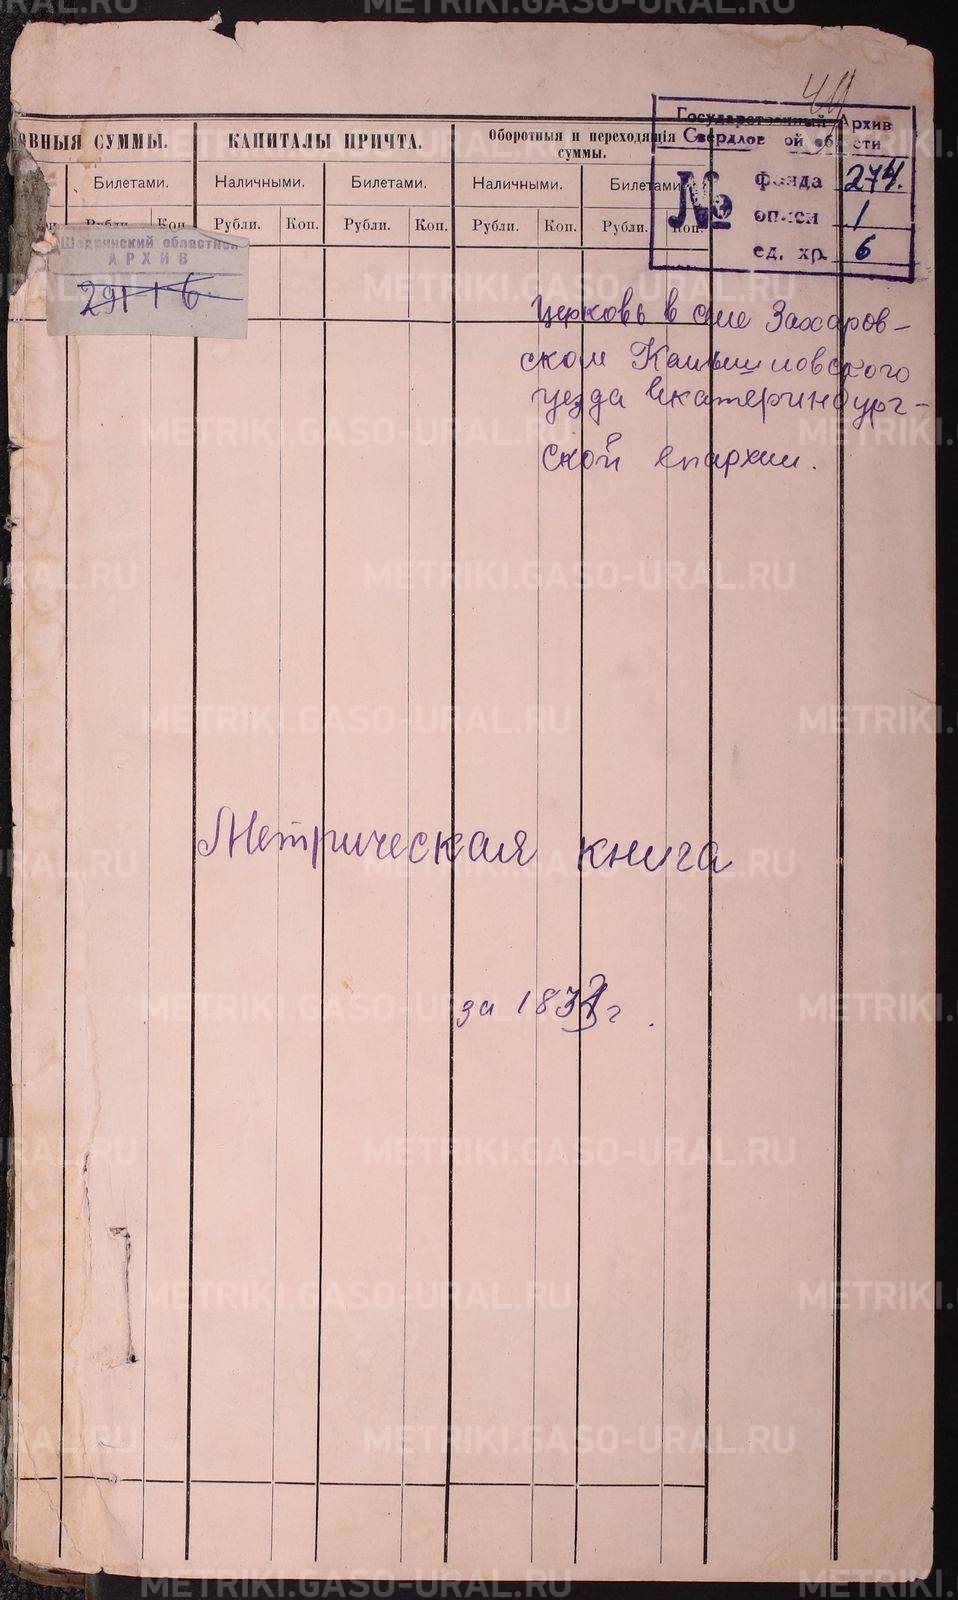 44
Государственный Архив
Свердлов ой об сти
№ фонда 274.
описи 1
ед. хр. 6
ОВНЫЯ СУММЫ. КАПИТАЛЫ ПРИЧТА. Оборотныя и переходящія суммы.
Билетами. Наличными. Билетами. Наличными. Билетами.
Рубли. Коп. Рубли. Коп. Рубли. Коп. Рубли. Коп. Рубли. Коп.
Шадринский областной
АРХИВ
291 1 6
Церковь в селе Захаров-
ском Камышловского
уезда Екатеринбург-
ской епархии.
Метрическая книга
за 183 г.
METRIKI.GASO-URAL.RU